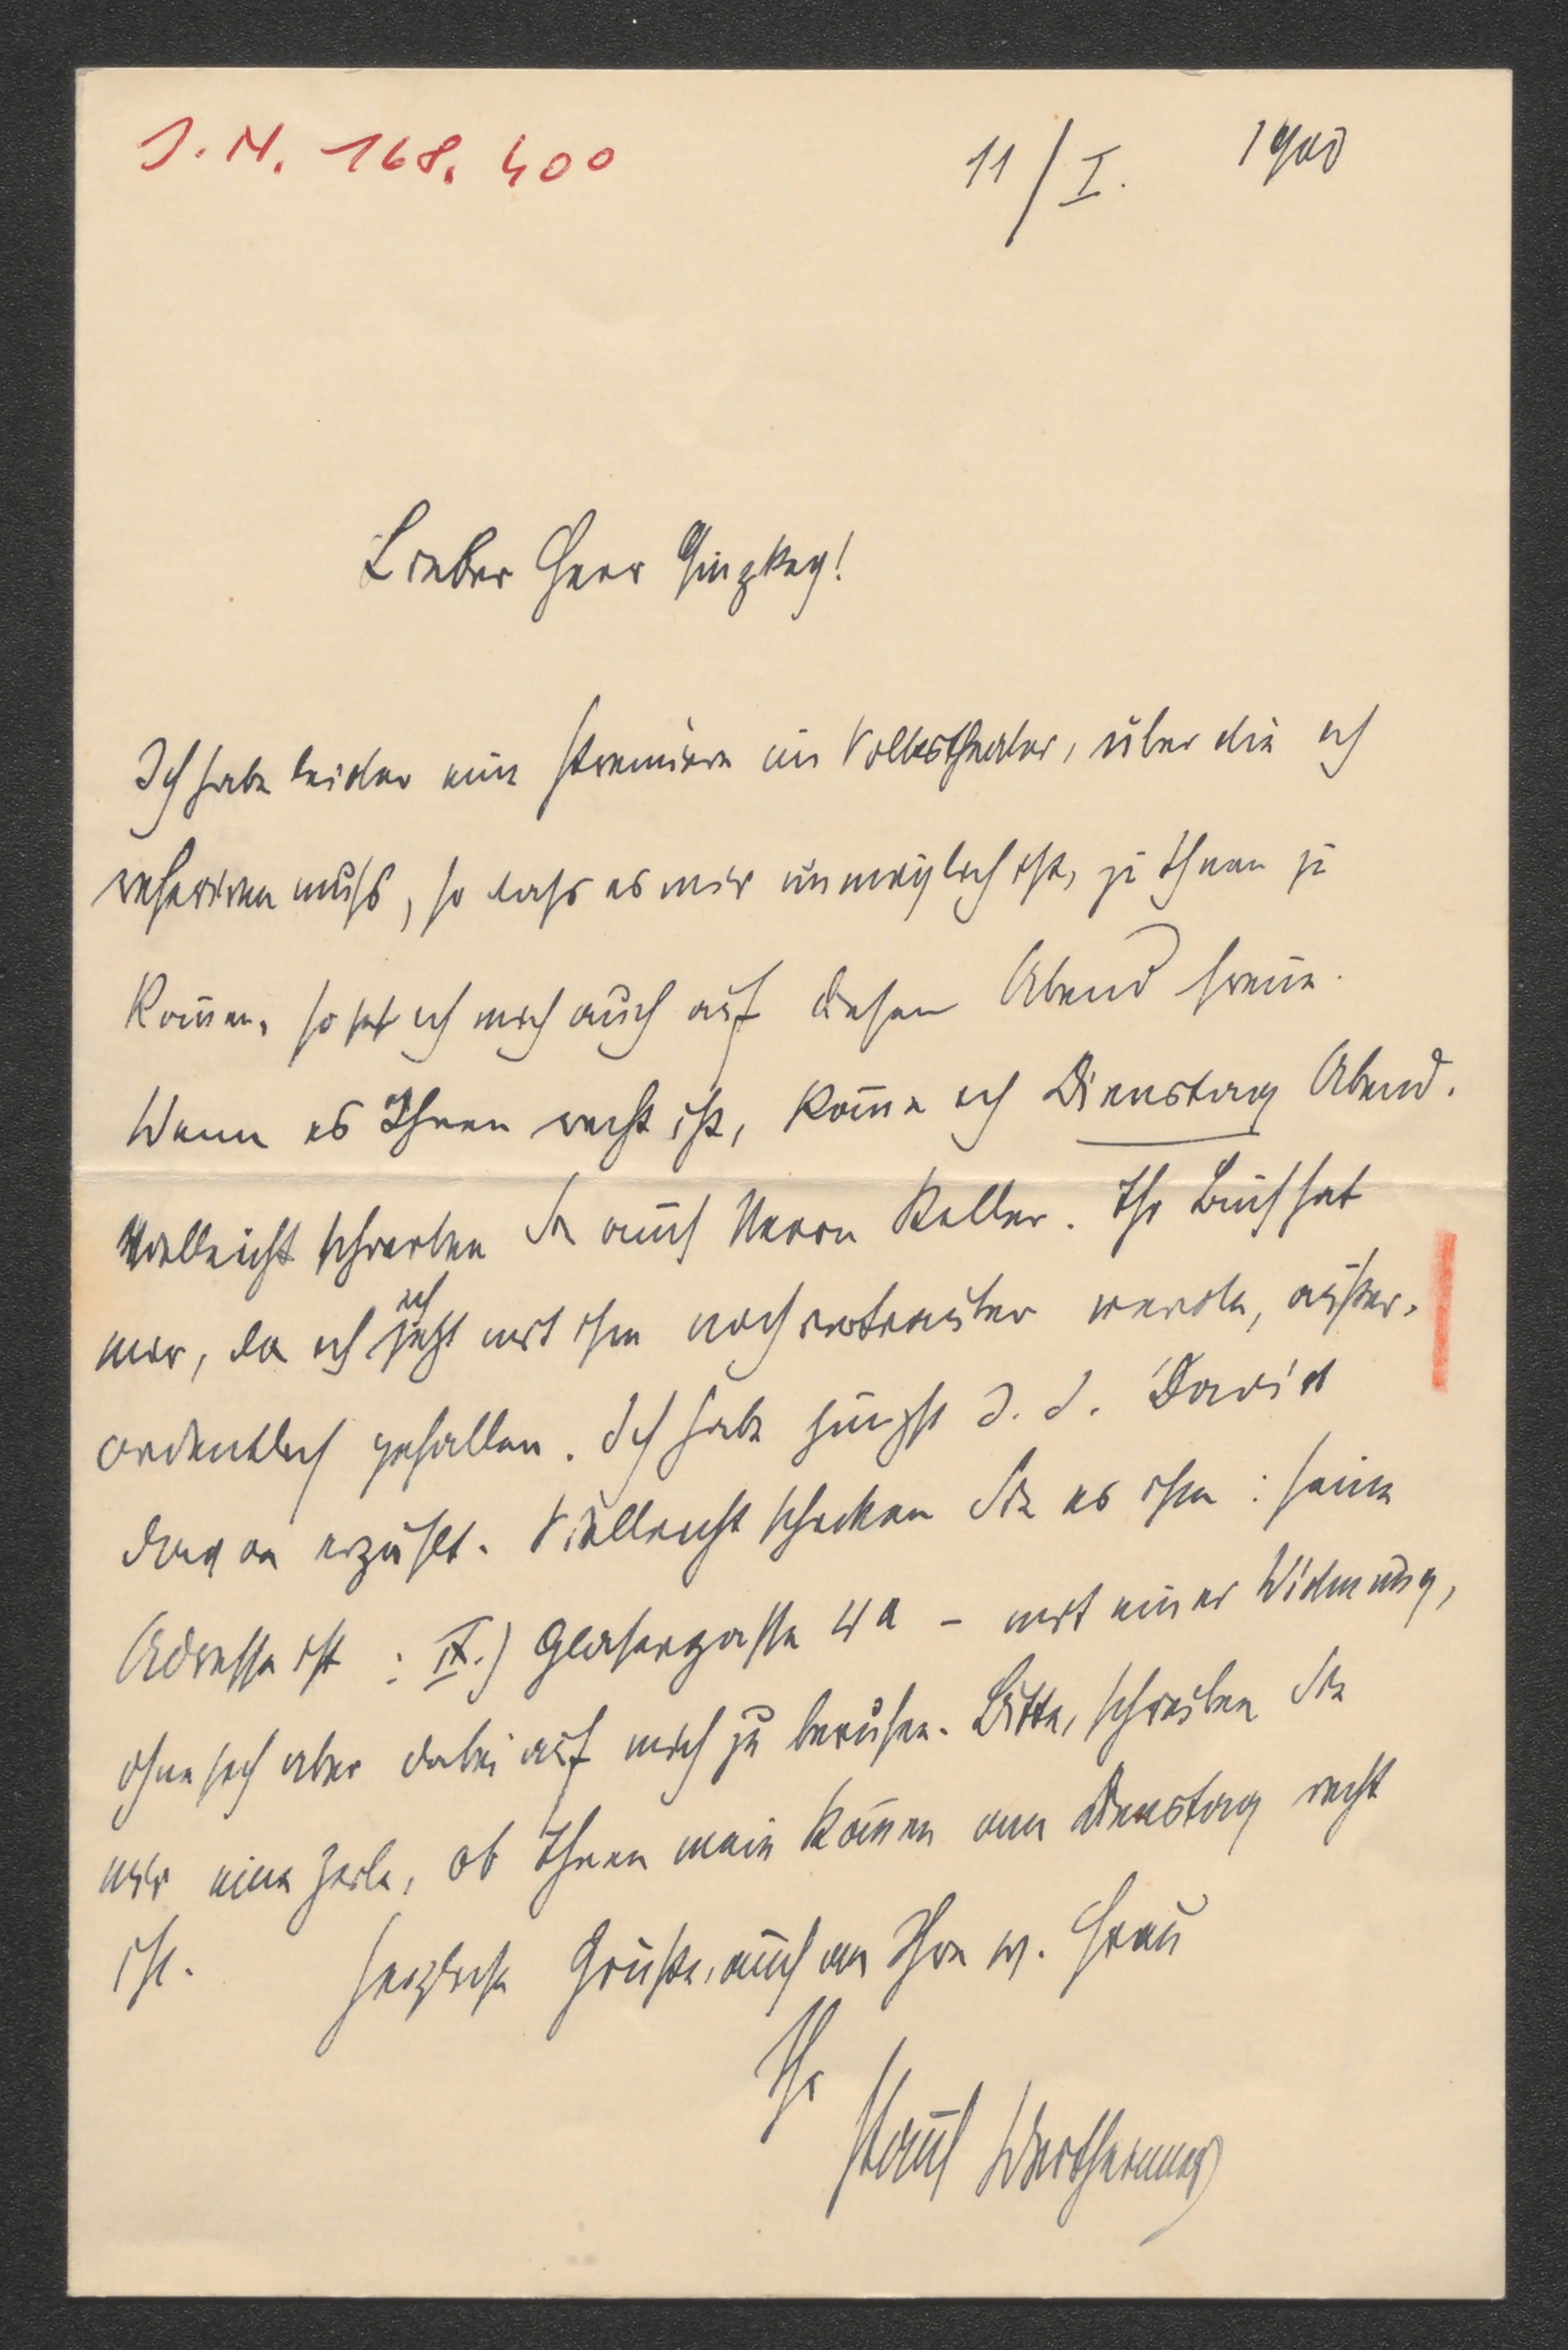 J. N. 168.400
11/I. 1900
Lieber Herr Ginzkey!
Ich habe leider eine Premiere im Volkstheater, über die ich
referiren muß, so dass es mir unmöglich ist, zu Ihnen zu
kom̅en, so sehr ich mich auch auf diesen Abend freue.
Wenn es Ihnen recht ist, kom̅e ich Dienstag Abend.
Vielleicht schreiben Sie auch Herrn Keller. Ihr Buch hat
mir, da ich jetzt mit ihm noch vertrauter werde, außer-
ich
ordentlich gefallen. Ich habe jüngst J. J. David
davon erzählt. Vielleicht schicken Sie es ihm: seine
Adresse ist: IX.) Glasergasse 4a – mit einer Widmung,
ohne sich aber dabei auf mich zu berufen. Bitte, schreiben Sie
mir eine Zeile, ob Ihnen mein Kom̅en am Dienstag recht
ist. Herzliche Grüße, auch an Ihre w. Frau
Ihr
Paul Wertheimer